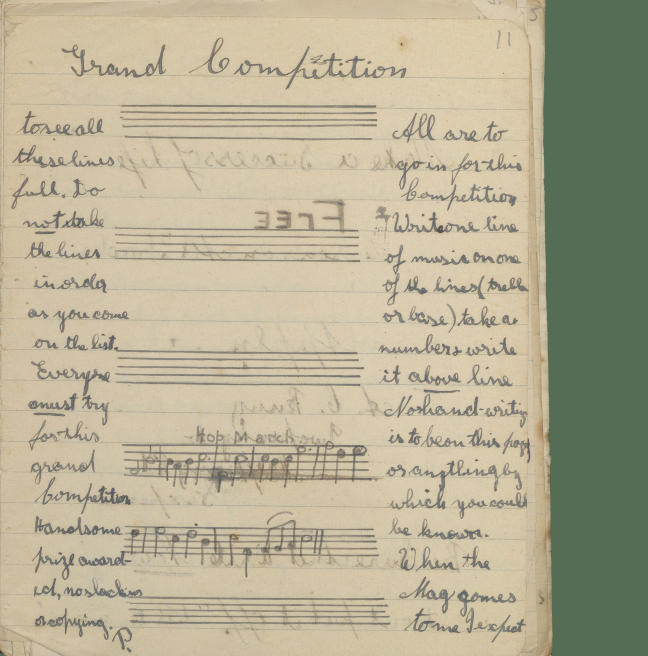 11
Grand Competition
All are to
go in for this
Competition
Write one line
of music on one
of the lines (treble
or base) take a
number & write
it above line
No hand-writing
is to be on this page
or anything by
which you could
be known.
When the
Mag gomes
to me I expect
to see all
these lines
full. Do
not take
the lines
in order
as you come
on the list.
Everyone
must try
for this
grand
Competition
Handsome
prize award-
ed, no slackers
or copying. P.
Hop March